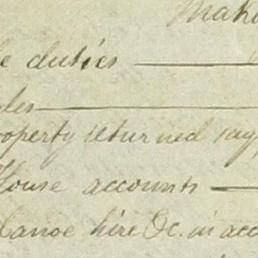 Maki
e duties
les
operty returned say
House accounts
Canoe hire &c. in acc